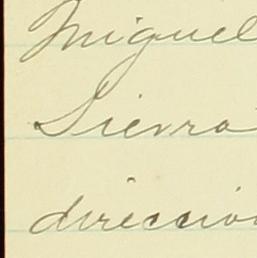 Miguel
Sierra
direccion